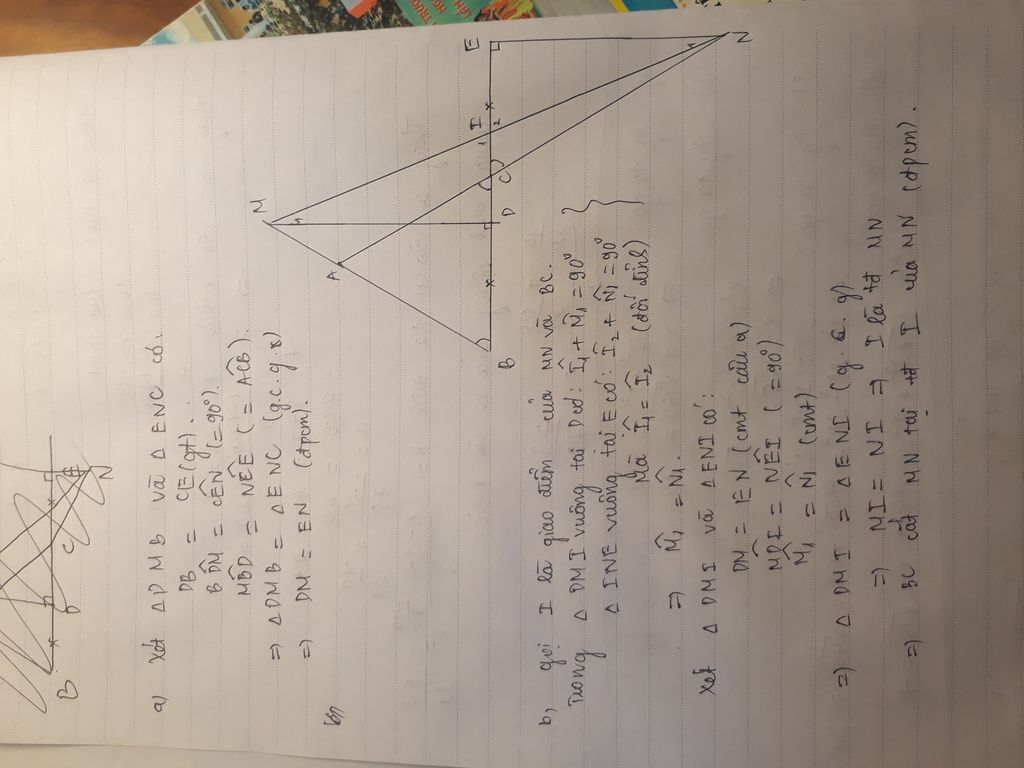 B
D
C
E
N
a) Xét Δ DMB và Δ ENC có.
DB = CE (gt).
BD̂M = CÊN (= 90°)
MB̂D = NĈE ( = AĈB ).
=) Δ DMB = Δ ENC (g.c.g.v)
=) DM = EN (đpcm).
M
A
B
D
C
I
E
N
1
1
2
1
b, gọi I là giao điểm của MN và BC.
Trong Δ DMI vuông tại D có: Î₁ + M̂₁ = 90°
Δ INE vuông tại E có: Î₂ + N̂₁ = 90°
Mà Î₁ = Î₂ (đối đỉnh)
=) M̂₁ = N̂₁.
Xét Δ DMI và Δ ENI có:
DM = EN (cmt câu a)
MD̂I = NÊI ( = 90°)
M̂₁ = N̂₁ (cmt)
=) Δ DMI = Δ ENI (g.c.g)
=) MI = NI =) I là tđ MN
=) BC cắt MN tại tđ I của MN (đpcm).